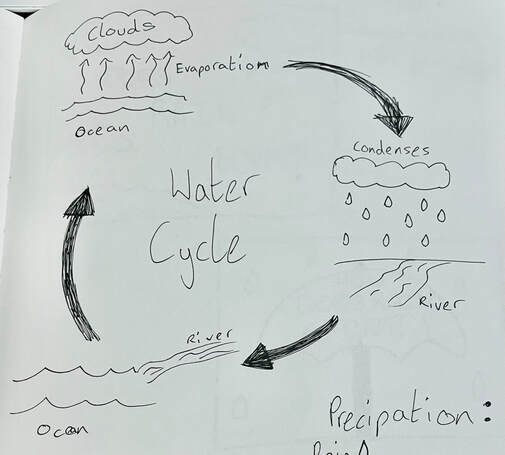 Clouds
Evaporation
Ocean
Condenses
Water
Cycle
River
River
Ocean
Precipation:
Rain